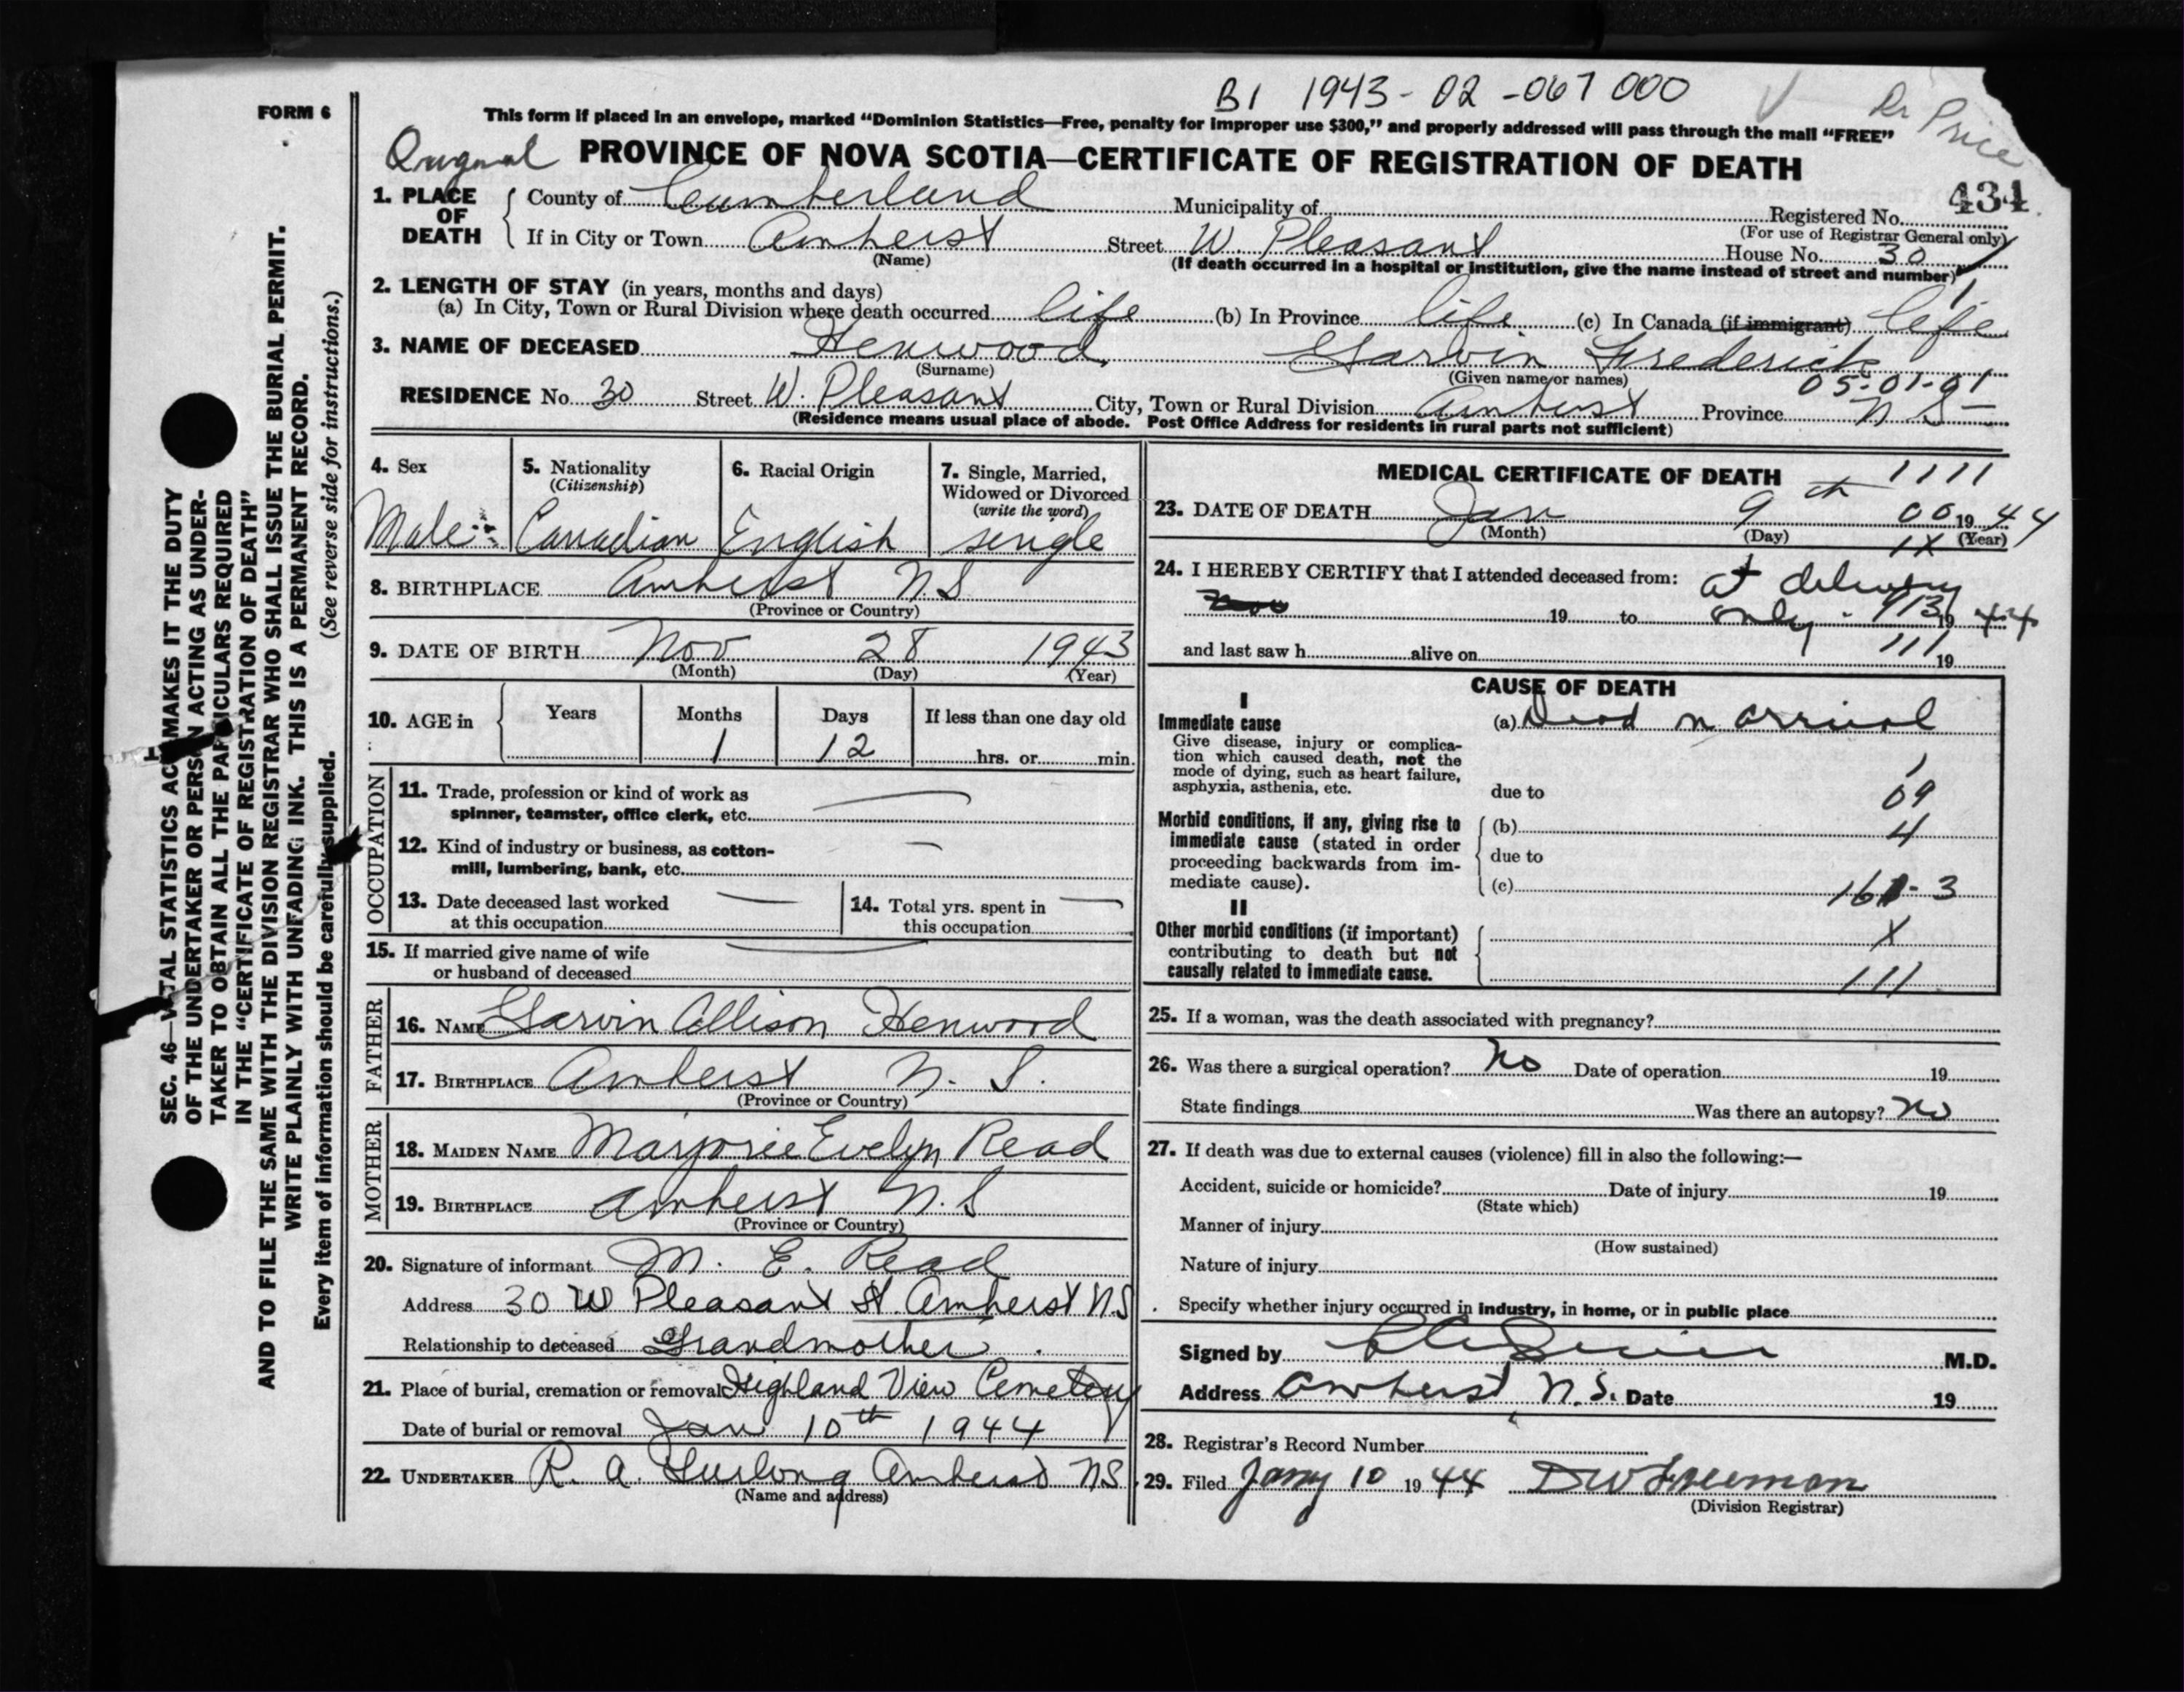 B1 1943-02-067000
Dr Price
FORM 6
This form if placed in an envelope, marked "Dominion Statistics—Free, penalty for improper use $300," and properly addressed will pass through the mail "FREE"
PROVINCE OF NOVA SCOTIA—CERTIFICATE OF REGISTRATION OF DEATH
434
1. PLACE OF DEATH
County of Cumberland Municipality of Registered No.
(For use of Registrar General only)
If in City or Town Amherst Street W. Pleasant House No. 30
(Name) (If death occurred in a hospital or institution, give the name instead of street and number)
2. LENGTH OF STAY (in years, months and days)
(a) In City, Town or Rural Division where death occurred life (b) In Province life (c) In Canada (if immigrant) life
3. NAME OF DECEASED Henwood, Garvin Frederick
(Surname) (Given name or names)
05-01-01
RESIDENCE No. 30 Street W. Pleasant City, Town or Rural Division Amherst Province N S
(Residence means usual place of abode. Post Office Address for residents in rural parts not sufficient)
4. Sex
Male
5. Nationality
(Citizenship)
Canadian
6. Racial Origin
English
7. Single, Married,
Widowed or Divorced
(write the word)
single
8. BIRTHPLACE Amherst N.S
(Province or Country)
9. DATE OF BIRTH Nov 28 1943
(Month) (Day) (Year)
10. AGE in
Years Months Days If less than one day old
1 12 hrs. or min.
OCCUPATION
11. Trade, profession or kind of work as
spinner, teamster, office clerk, etc.
12. Kind of industry or business, as cotton-
mill, lumbering, bank, etc.
13. Date deceased last worked
at this occupation
14. Total yrs. spent in
this occupation
15. If married give name of wife
or husband of deceased
FATHER
16. NAME Garvin Allison Henwood
17. BIRTHPLACE Amherst N. S.
(Province or Country)
MOTHER
18. MAIDEN NAME Marjorie Evelyn Read
19. BIRTHPLACE Amherst N.S
(Province or Country)
20. Signature of informant M. E. Read
Address 30 W Pleasant St. Amherst N S
Relationship to deceased Grandmother
21. Place of burial, cremation or removal Highland View Cemetery
Date of burial or removal Jan 10th 1944
22. UNDERTAKER R. A. Furlong Amherst N S
(Name and address)
MEDICAL CERTIFICATE OF DEATH
1111
23. DATE OF DEATH Jan 9th 1944
(Month) (Day) (Year)
24. I HEREBY CERTIFY that I attended deceased from: at delivery
19 to only 19 44
and last saw h alive on 19
111
CAUSE OF DEATH
I
Immediate cause
Give disease, injury or complica-
tion which caused death, not the
mode of dying, such as heart failure,
asphyxia, asthenia, etc.
(a) Dead on arrival
due to
09
4
Morbid conditions, if any, giving rise to
immediate cause (stated in order
proceeding backwards from im-
mediate cause).
(b)
due to
(c)
II
Other morbid conditions (if important)
contributing to death but not
causally related to immediate cause.
X
111
25. If a woman, was the death associated with pregnancy?
26. Was there a surgical operation? No Date of operation 19
State findings Was there an autopsy? No
27. If death was due to external causes (violence) fill in also the following:—
Accident, suicide or homicide? Date of injury 19
(State which)
Manner of injury
(How sustained)
Nature of injury
Specify whether injury occurred in industry, in home, or in public place
Signed by M.D.
Address Amherst, N.S. Date 19
28. Registrar's Record Number
29. Filed Jany 10 1944 DW Freeman
(Division Registrar)
OF THE UNDERTAKER OR PERSON ACTING AS UNDER-
IN THE "CERTIFICATE OF REGISTRATION OF DEATH"
AND TO FILE THE SAME WITH THE DIVISION REGISTRAR WHO SHALL ISSUE THE BURIAL PERMIT.
WRITE PLAINLY WITH UNFADING INK. THIS IS A PERMANENT RECORD.
Every item of information should be carefully supplied. (See reverse side for instructions.)